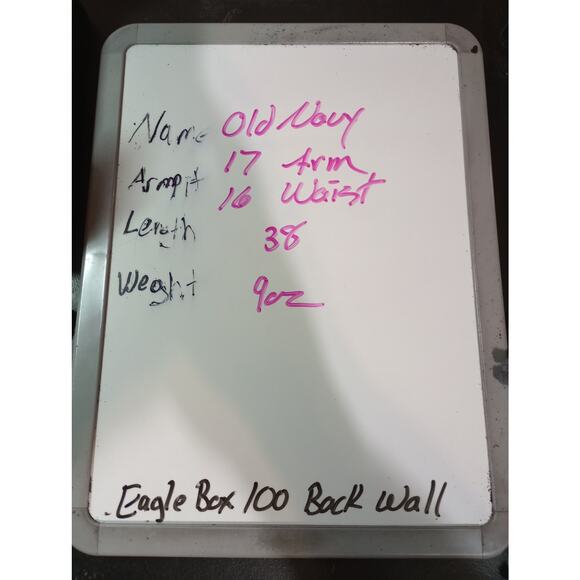 Name Old Navy
17 Arm
Armpit 16 Waist
Length 38
Weight 9oz
Eagle Box 100 Back Wall